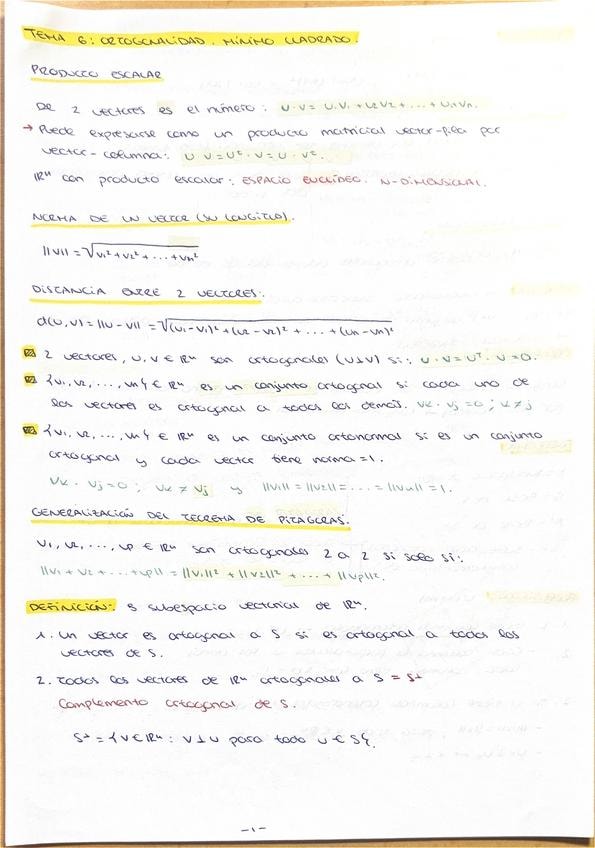 TEMA 6: ORTOGONALIDAD. MÍNIMO CUADRADO.
PRODUCTO ESCALAR
De 2 vectores es el número: u·v = u₁v₁ + u₂v₂ + ... + uₙvₙ.
→ Puede expresarse como un producto matricial vector-fila por
vector-columna: u·v = uᵀ·v = u·vᵀ.
ℝⁿ con producto escalar: ESPACIO EUCLÍDEO N-DIMENSIONAL.
NORMA DE UN VECTOR (SU LONGITUD).
||v|| = √v₁² + v₂² + ... + vₙ²
DISTANCIA ENTRE 2 VECTORES:
d(u,v) = ||u - v|| = √(u₁-v₁)² + (u₂-v₂)² + ... + (uₙ-vₙ)²
2 vectores, u, v ∈ ℝⁿ son ortogonales (u⊥v) si: u·v = uᵀ·v = 0.
{v₁, v₂, ..., vₙ} ∈ ℝⁿ es un conjunto ortogonal si cada uno de
los vectores es ortogonal a todos los demás. vₖ·vⱼ = 0; k ≠ j
{v₁, v₂, ..., vₙ} ∈ ℝⁿ es un conjunto ortonormal si es un conjunto
ortogonal y cada vector tiene norma = 1.
vₖ·vⱼ = 0; vₖ ≠ vⱼ y ||v₁|| = ||v₂|| = ... = ||vₙ|| = 1.
GENERALIZACIÓN DEL TEOREMA DE PITÁGORAS.
v₁, v₂, ..., vp ∈ ℝⁿ son ortogonales 2 a 2 si solo si:
||v₁ + v₂ + ... + vp||² = ||v₁||² + ||v₂||² + ... + ||vp||².
DEFINICIÓN: S subespacio vectorial de ℝⁿ.
1. Un vector es ortogonal a S si es ortogonal a todos los
vectores de S.
2. Todos los vectores de ℝⁿ ortogonales a S = S⊥
Complemento ortogonal de S.
S⊥ = {v ∈ ℝⁿ: v⊥u para todo u ∈ S}.
-1-